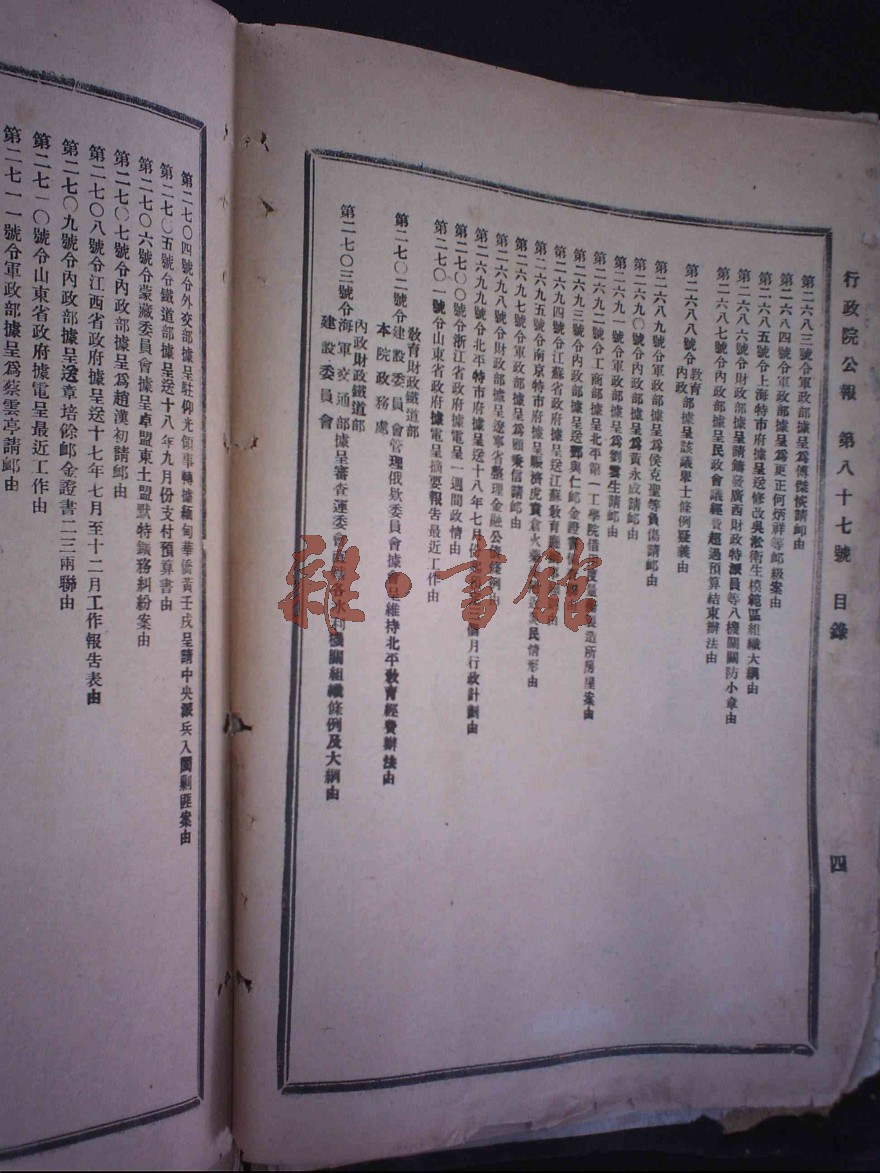 行政院公報 第八十七號 目錄
四
第二六八三號令軍政部據呈爲傅傑悞請䘏由
第二六八四號令軍政部據呈爲更正何炳祥等䘏級案由
第二六八五號令上海特市府據呈送修改吳淞衛生模範區組織大綱由
第二六八六號令財政部據呈請鑄發廣西財政特派員等八機關關防小章由
第二六八七號令內政部據呈民政會議經費超過預算結束辦法由
第二六八八號令教育內政部據呈該議褒士條例疑義由
第二六八九號令軍政部據呈爲侯克聖等負傷請䘏由
第二六九〇號令內政部據呈爲黃永成請䘏由
第二六九一號令軍政部據呈爲劉雲生請䘏由
第二六九二號令工商部據呈北平第一工學院借用度量衡製造所房屋案由
第二六九三號令內政部據呈送鄧與仁䘏金證書由
第二六九四號令江蘇省政府據呈送江蘇教育廳由
第二六九五號令南京特市府據呈賑濟虎賁倉火藥災民情形由
第二六九七號令軍政部據呈爲顧秉信請䘏由
第二六九八號令財政部據呈遼寧省整理金融公債條例由
第二六九九號令北平特市府據呈送十八年七月份起個月行政計劃由
第二七〇〇號令浙江省政府據電呈一週間政情由
第二七〇一號令山東省政府據電呈摘要報告最近工作由
第二七〇二號令教育財政鐵道部建設委員會本院政務處管理俄欵委員會據會呈維持北平敎育經費辦法由
第二七〇三號令內政財政鐵道海軍交通部建設委員會據呈審查運委會各水利機關組織條例及大綱由
第二七〇四號令外交部據呈駐仰光領事轉據緬甸華僑黃壬戌呈請中央派兵入閩剿匪案由
第二七〇五號令鐵道部據呈送十八年九月份支付預算書由
第二七〇六號令蒙藏委員會據呈卓盟東土盟默特鑛務糾紛案由
第二七〇七號令內政部據呈爲趙漢初請䘏由
第二七〇八號令江西省政府據呈送十七年七月至十二月工作報告表由
第二七〇九號令內政部據呈送章培餘䘏金證書二三兩聯由
第二七一〇號令山東省政府據電呈最近工作由
第二七一一號令軍政部據呈爲蔡雲亭請䘏由
雜·書館